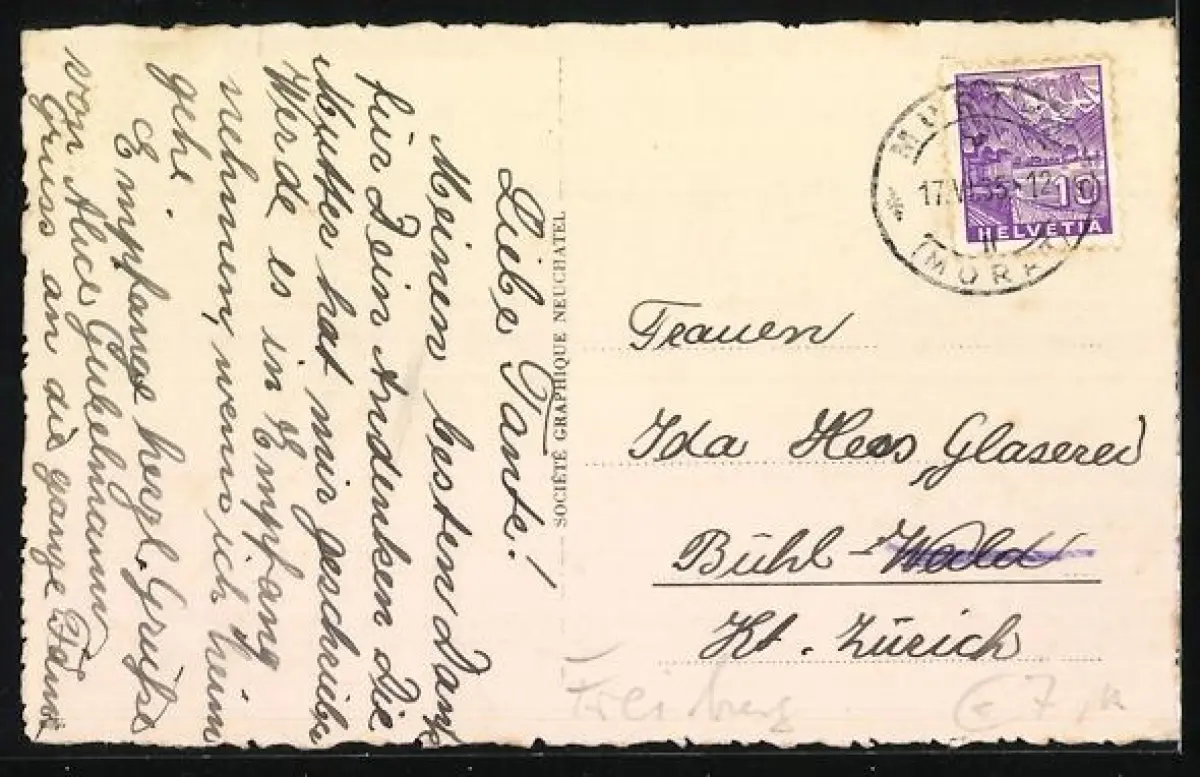 Liebe Tante!
Meinen besten Dank
für Dein Andenken Die
Mutter hat mir geschrieben
Werde es in Empfang
nehmen, wenn ich heim
gehe.
Empfange herzl. Grüsse
von Alice Gukelmann
Gruss an die ganze Famil
SOCIÉTÉ GRAPHIQUE NEUCHATEL
17.VI.35-12
10
HELVETIA
Frauen
Ida Hess, Glaserei
Bühl-Wald
Kt. Zürich
Freiburg
€ 7,-